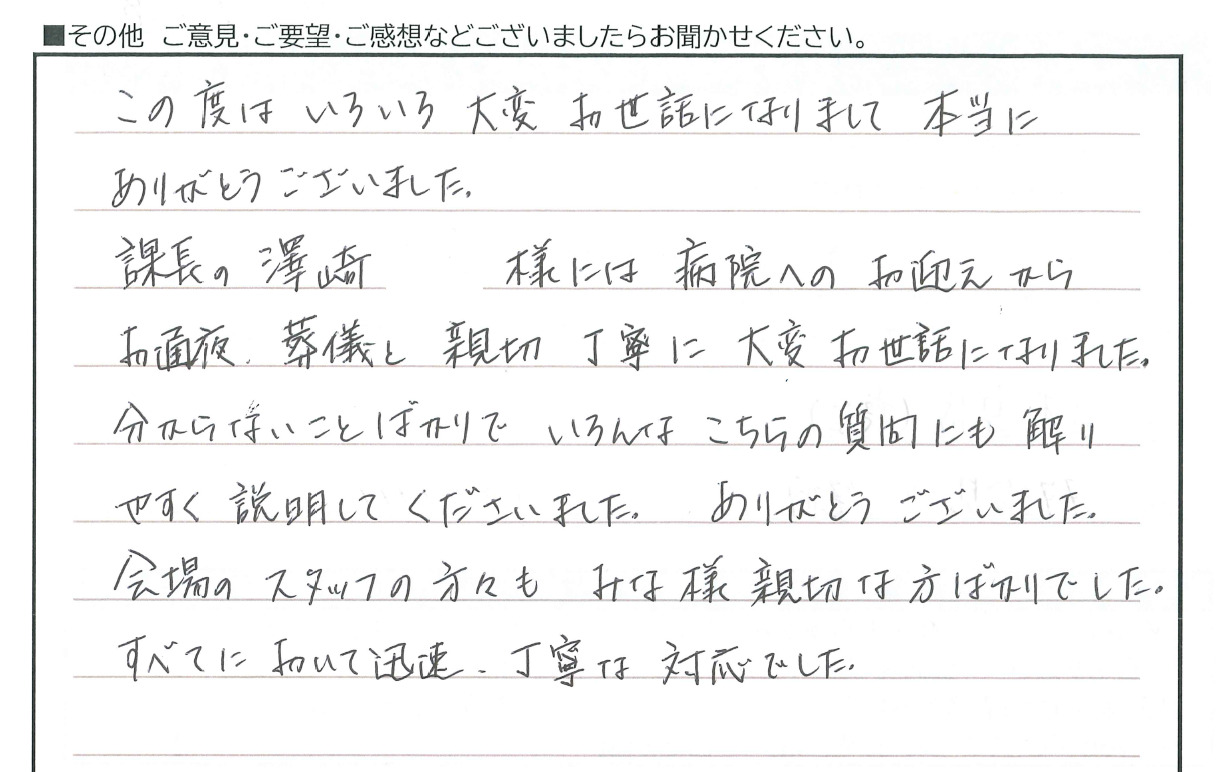 ■その他 ご意見・ご要望・ご感想などございましたらお聞かせください。
この度は いろいろ 大変 お世話になりまして 本当に
ありがとうございました。
課長の 澤崎 様には 病院への お迎えから
お通夜、葬儀と 親切 丁寧に 大変 お世話になりました。
分からないことばかりで いろんな こちらの質問にも 解り
やすく 説明してくださいました。 ありがとうございました。
会場の スタッフの 方々も みな様 親切な方ばかりでした。
すべてに おいて迅速、丁寧な 対応でした。